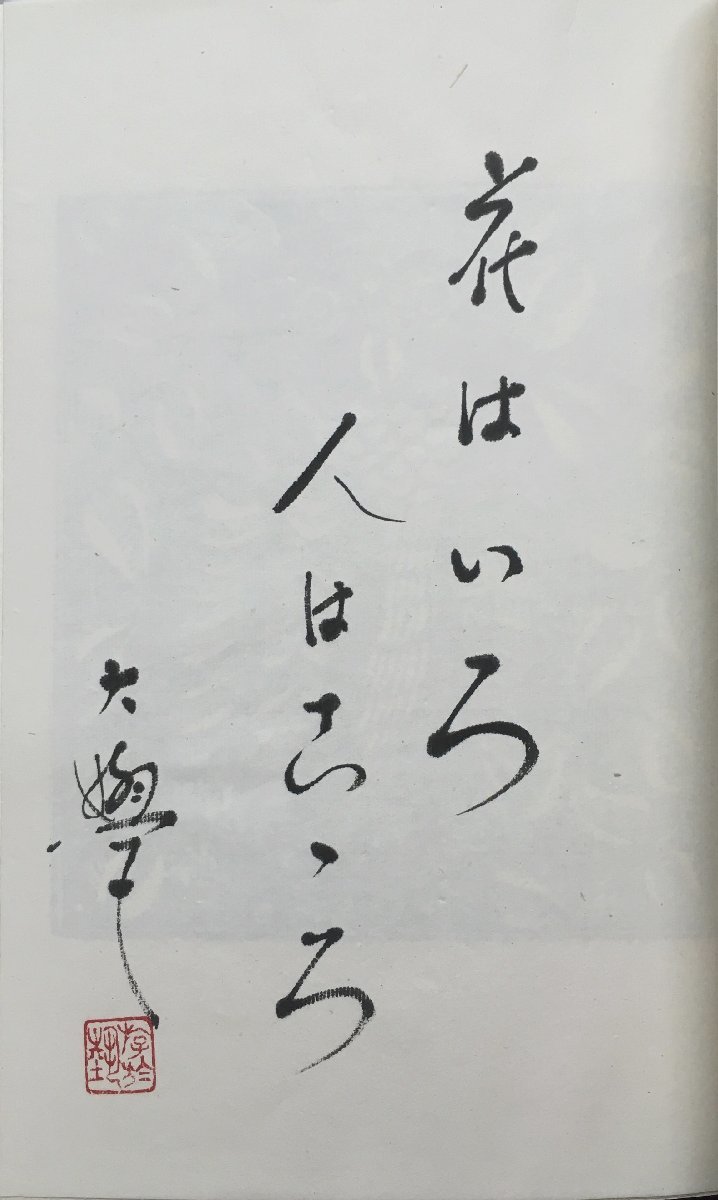 花はいろ
人はこゝろ
大學